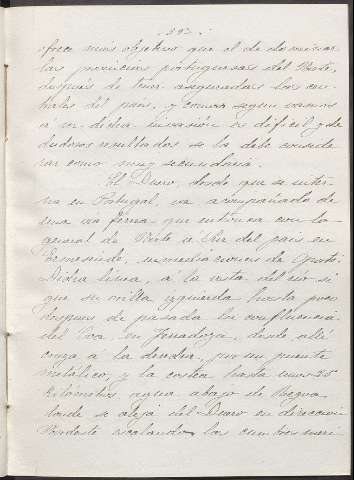 ofrece más objetivo que el de dominar
las provincias portuguesas del Norte,
después de tener aseguradas las
del país, y como según vamos
á ver dicha invasión es dificil y de
dudosos resultados se la debe conside
rar como muy secundaria.
El Duero, desde que se inter
na en Portugal, va acompañado de
una via férrea que entronca con la
general de Norte á Sur del pais en
Ermesinde, inmediaciones de Oporto
Dicha linea, á la vista del rio si
gue su orilla izquierda hasta poco
despues de pasada la confluencia
del Coa, en desde allí
cruza á la derecha, por un puente
metálico, y la costea hasta unos 25
kilómetros agua abajo de Regua,
donde se aleja del Duero en direccion
Nordoeste escalando las cumbres